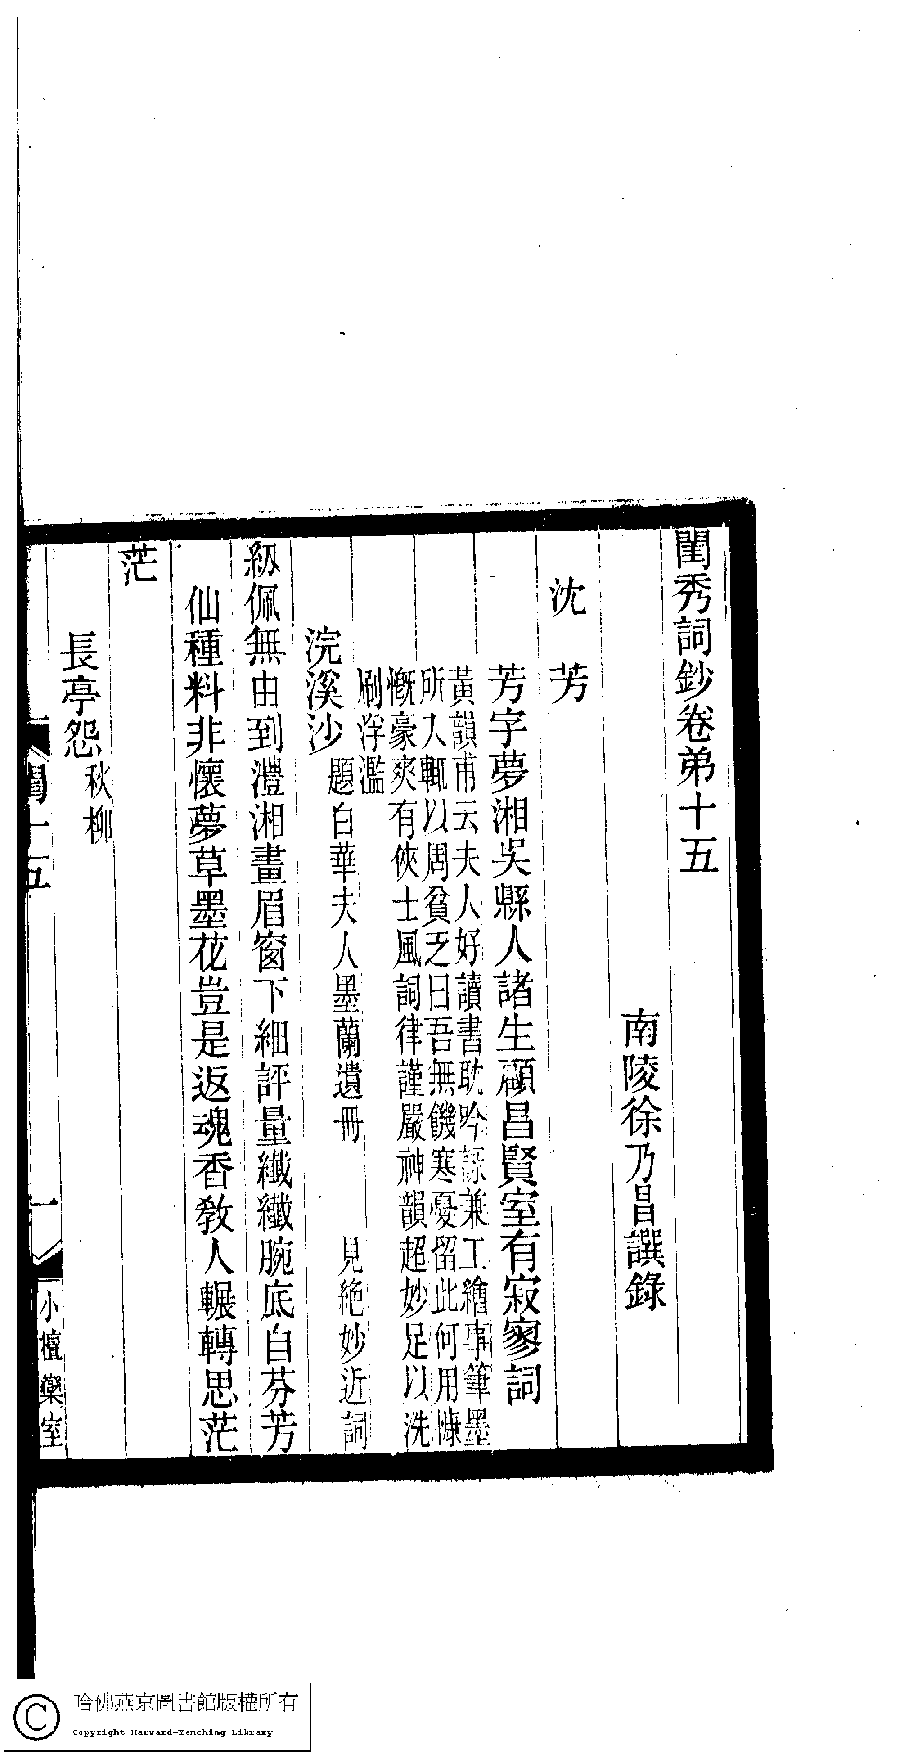 閨秀詞鈔卷弟十五
南陵徐乃昌譔錄
沈芳
芳字夢湘吳縣人諸生顧昌賢室有寂寥詞
黃韻甫云夫人好讀書耽吟詠兼工繪事筆墨
所入輒以周貧乏曰吾無饑寒憂留此何用慷
慨豪爽有俠士風詞律謹嚴神韻超妙足以洗
刷浮濫
浣溪沙 題自華夫人墨蘭遺冊 見絶妙近詞
紉佩無由到澧湘畫眉窗下細評量纖纖腕底自芬芳
仙種料非懷夢草墨花豈是返魂香敎人輾轉思茫
茫
長亭怨 秋柳
閨十五
一
小檀欒室
哈佛燕京圖書館版權所有
Copyright Harvard-Yenching Library